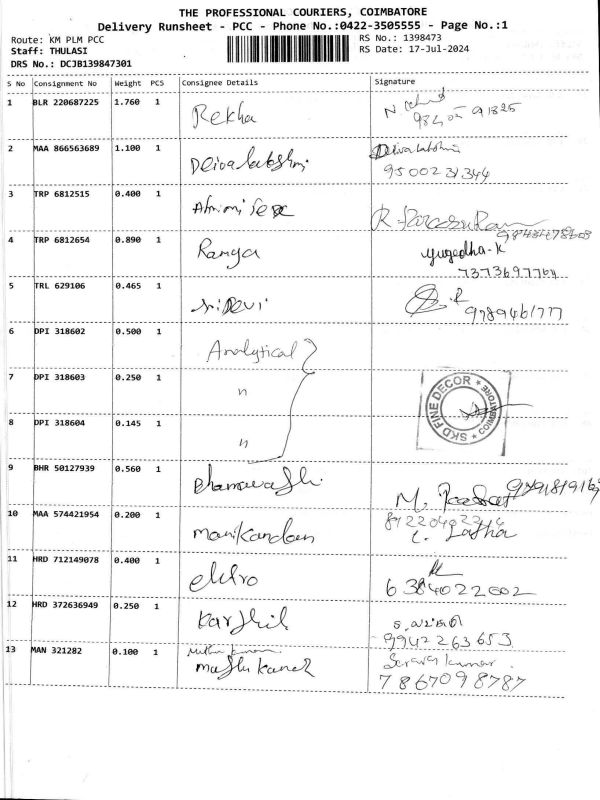 THE PROFESSIONAL COURIERS, COIMBATORE
Delivery Runsheet - PCC - Phone No.:0422-3505555 - Page No.:1
Route: KM PLM PCC
RS No.: 1398473
Staff: THULASI
RS Date: 17-Jul-2024
DRS No.: DCJB139847301
S No Consignment No Weight PCS Consignee Details Signature
1 BLR 220687225 1.760 1 Rekha
2 MAA 866563689 1.100 1 Deivalakshmi Deivalakshmi
9500231344
3 TRP 6812515 0.400 1
4 TRP 6812654 0.890 1 Ranga yugedha.K
7373697764
5 TRL 629106 0.465 1 sriDevi
9789461777
6 DPI 318602 0.500 1 Analytical
7 DPI 318603 0.250 1 "
SKD FINE DECOR * COIMBATORE *
8 DPI 318604 0.145 1 "
9 BHR 50127939 0.560 1
10 MAA 574421954 0.200 1 manikandan
L. Latha
11 HRD 712149078 0.400 1 elktro
6384022002
12 HRD 372636949 0.250 1 karthik
9942263653
13 MAN 321282 0.100 1
Saravakumar
7867098787